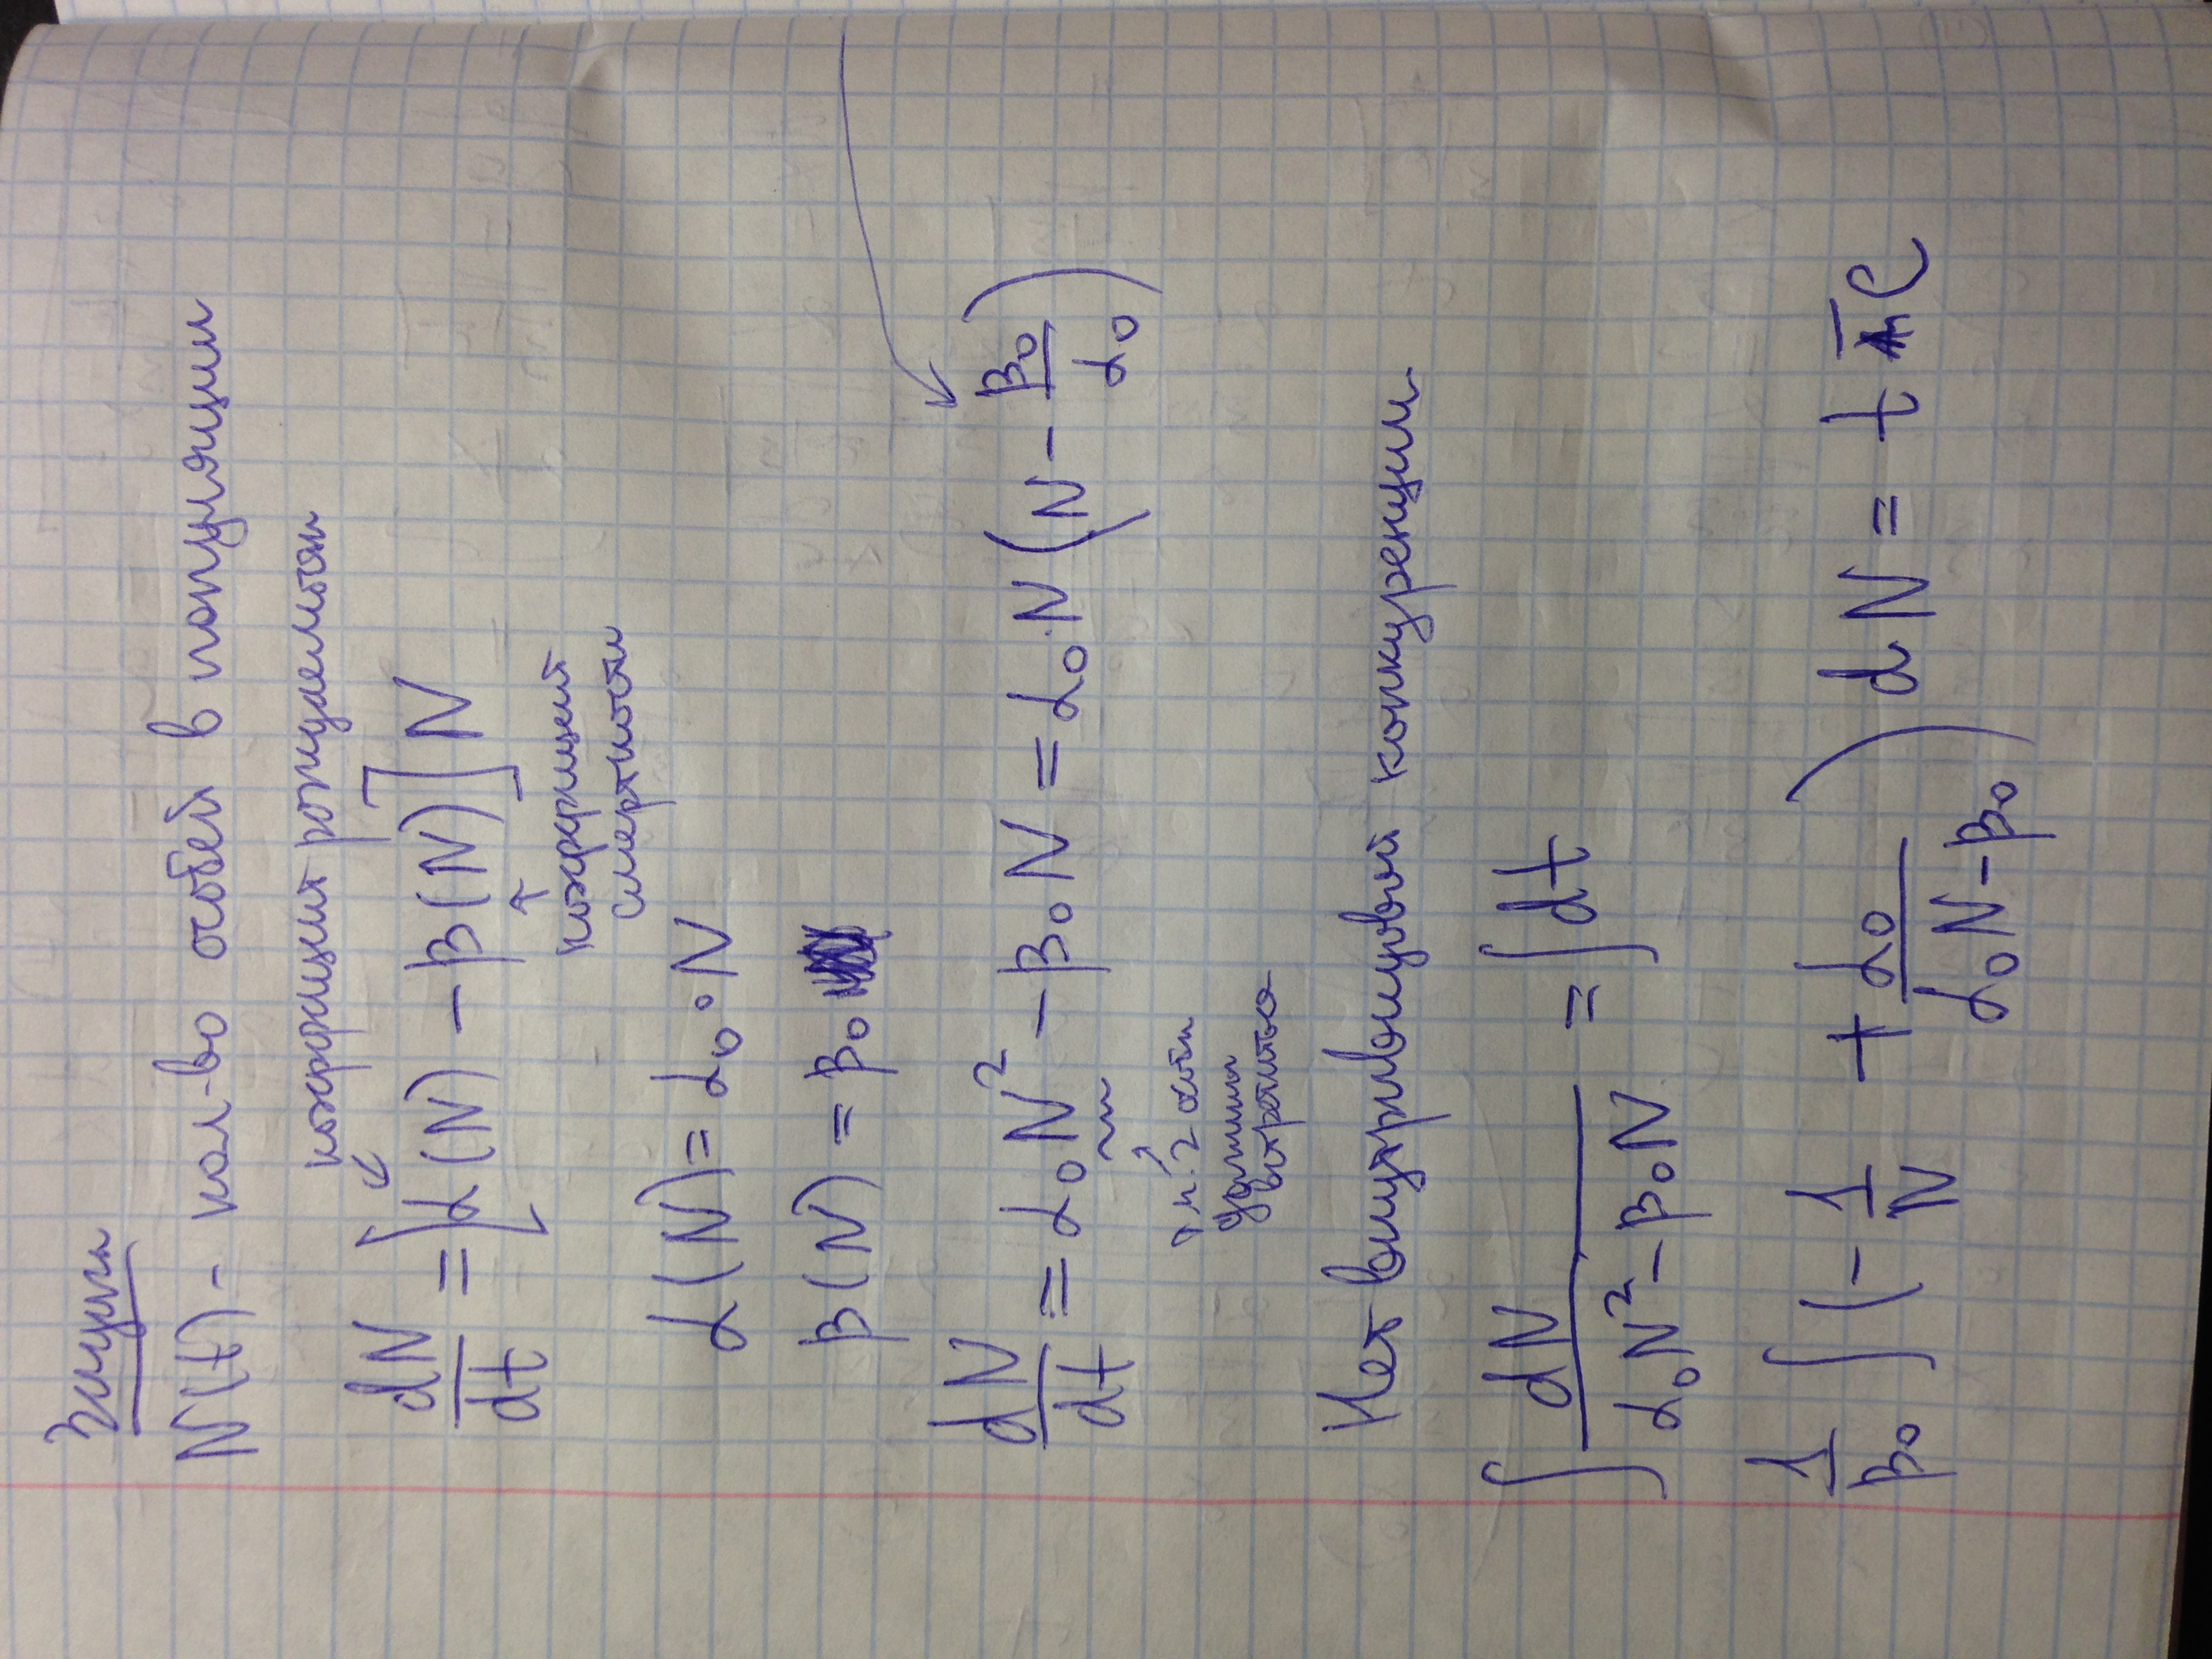 N(t) - кол-во особей в популяции
коэффициент рождаемости
dN/dt = [α(N) - β(N)] N
коэффициент
смертности
α(N) = α₀ · N
β(N) = β₀
dN/dt = α₀N² - β₀N = α₀·N (N - β₀/α₀)
т.к. 2 особи
должны
встретиться
Нет внутривидовой конкуренции
∫ dN/(α₀N² - β₀N) = ∫ dt
1/β₀ ∫ (- 1/N + α₀/(α₀N - β₀)) dN = t + C